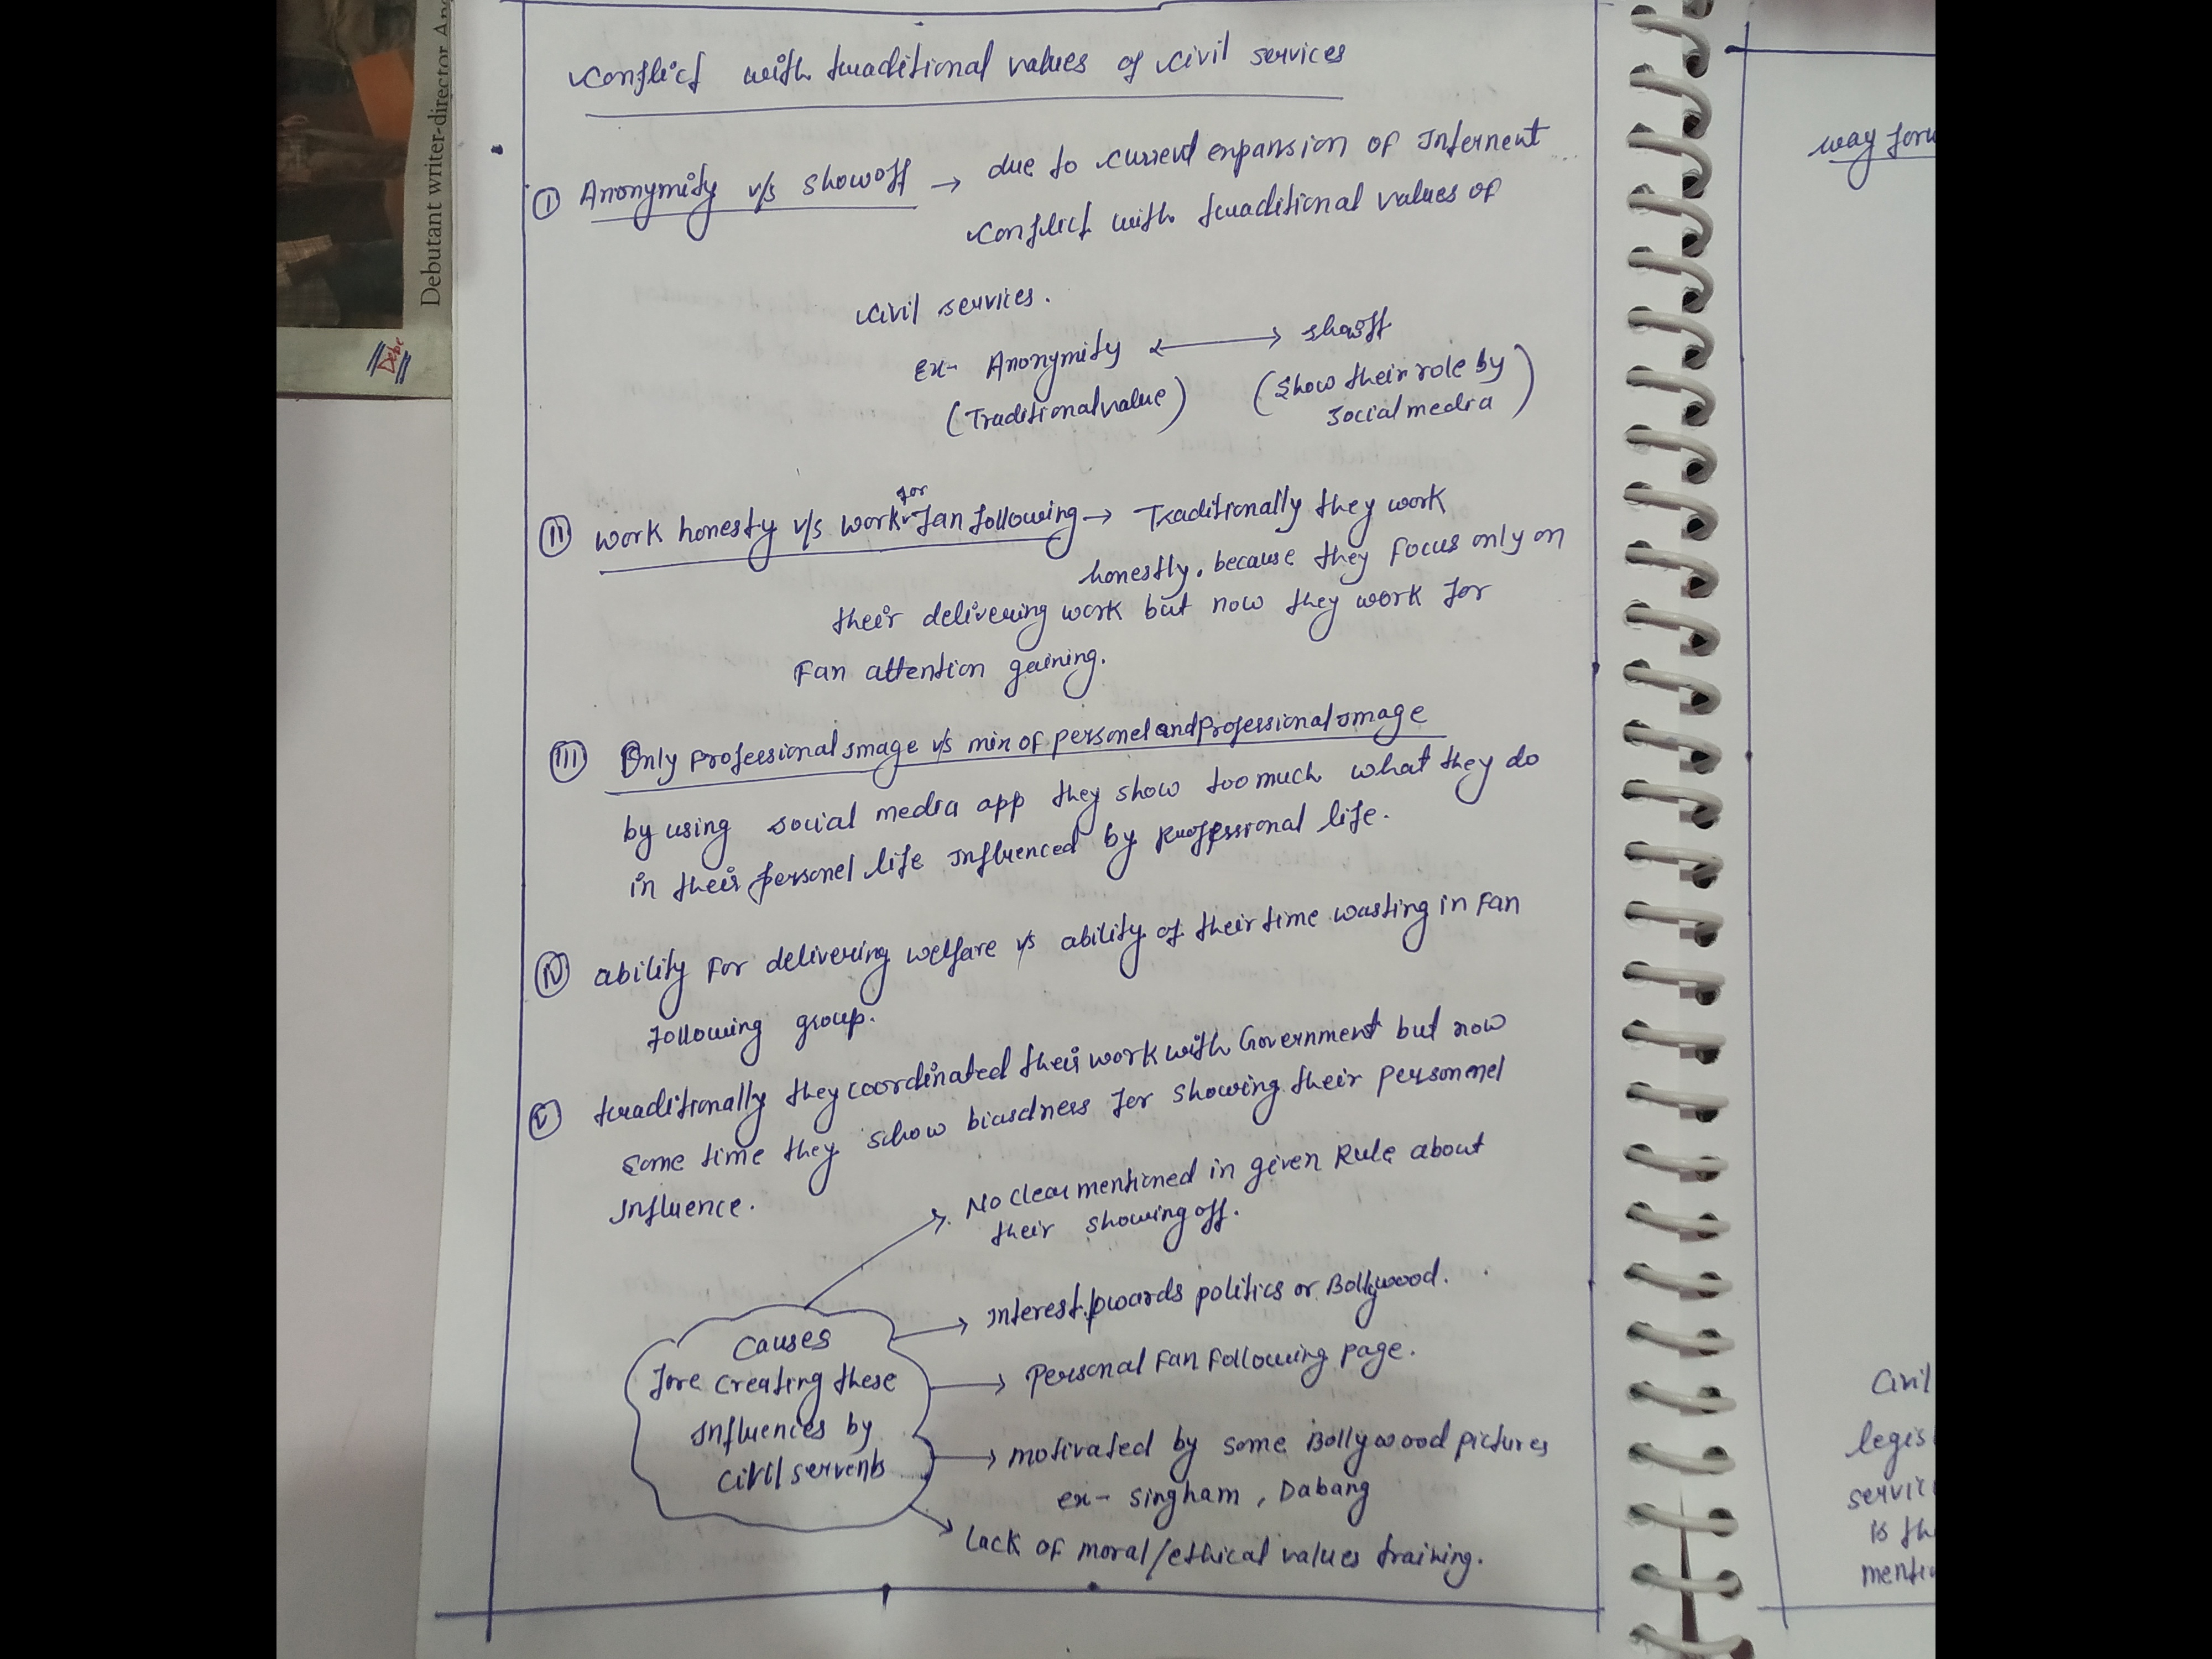 Debutant writer-director
Debc
Conflict with traditional values of civil services
I Anonymity v/s showoff → due to current expansion of Internent
conflict with traditional values of
civil services.
Ex- Anonymity ↔ shooff
(Traditional value) (Show their role by
social media)
II work honesty v/s work for fan following → Traditionally they work
honestly. because they focus only on
their delivering work but now they work for
Fan attention gaining.
III Only professional image v/s mix of personel and professional image
by using social media app they show too much what they do
in their personel life influenced by professional life.
IV ability for delivering welfare v/s ability of their time wasting in fan
following group.
V traditionally they coordinated their work with Government but now
some time they show biasdness for showing their personnel
influence.
→ No clear mentioned in given Rule about
their showing off.
→ Interest towards politics or Bollywood.
Causes
fore creating these
influences by
civil servents
→ Personal fan following page.
→ motivated by some Bollywood pictures
ex- singham, Dabang
→ lack of moral/ethical values training.
way forw
Civil
legis
servic
is the
mentio